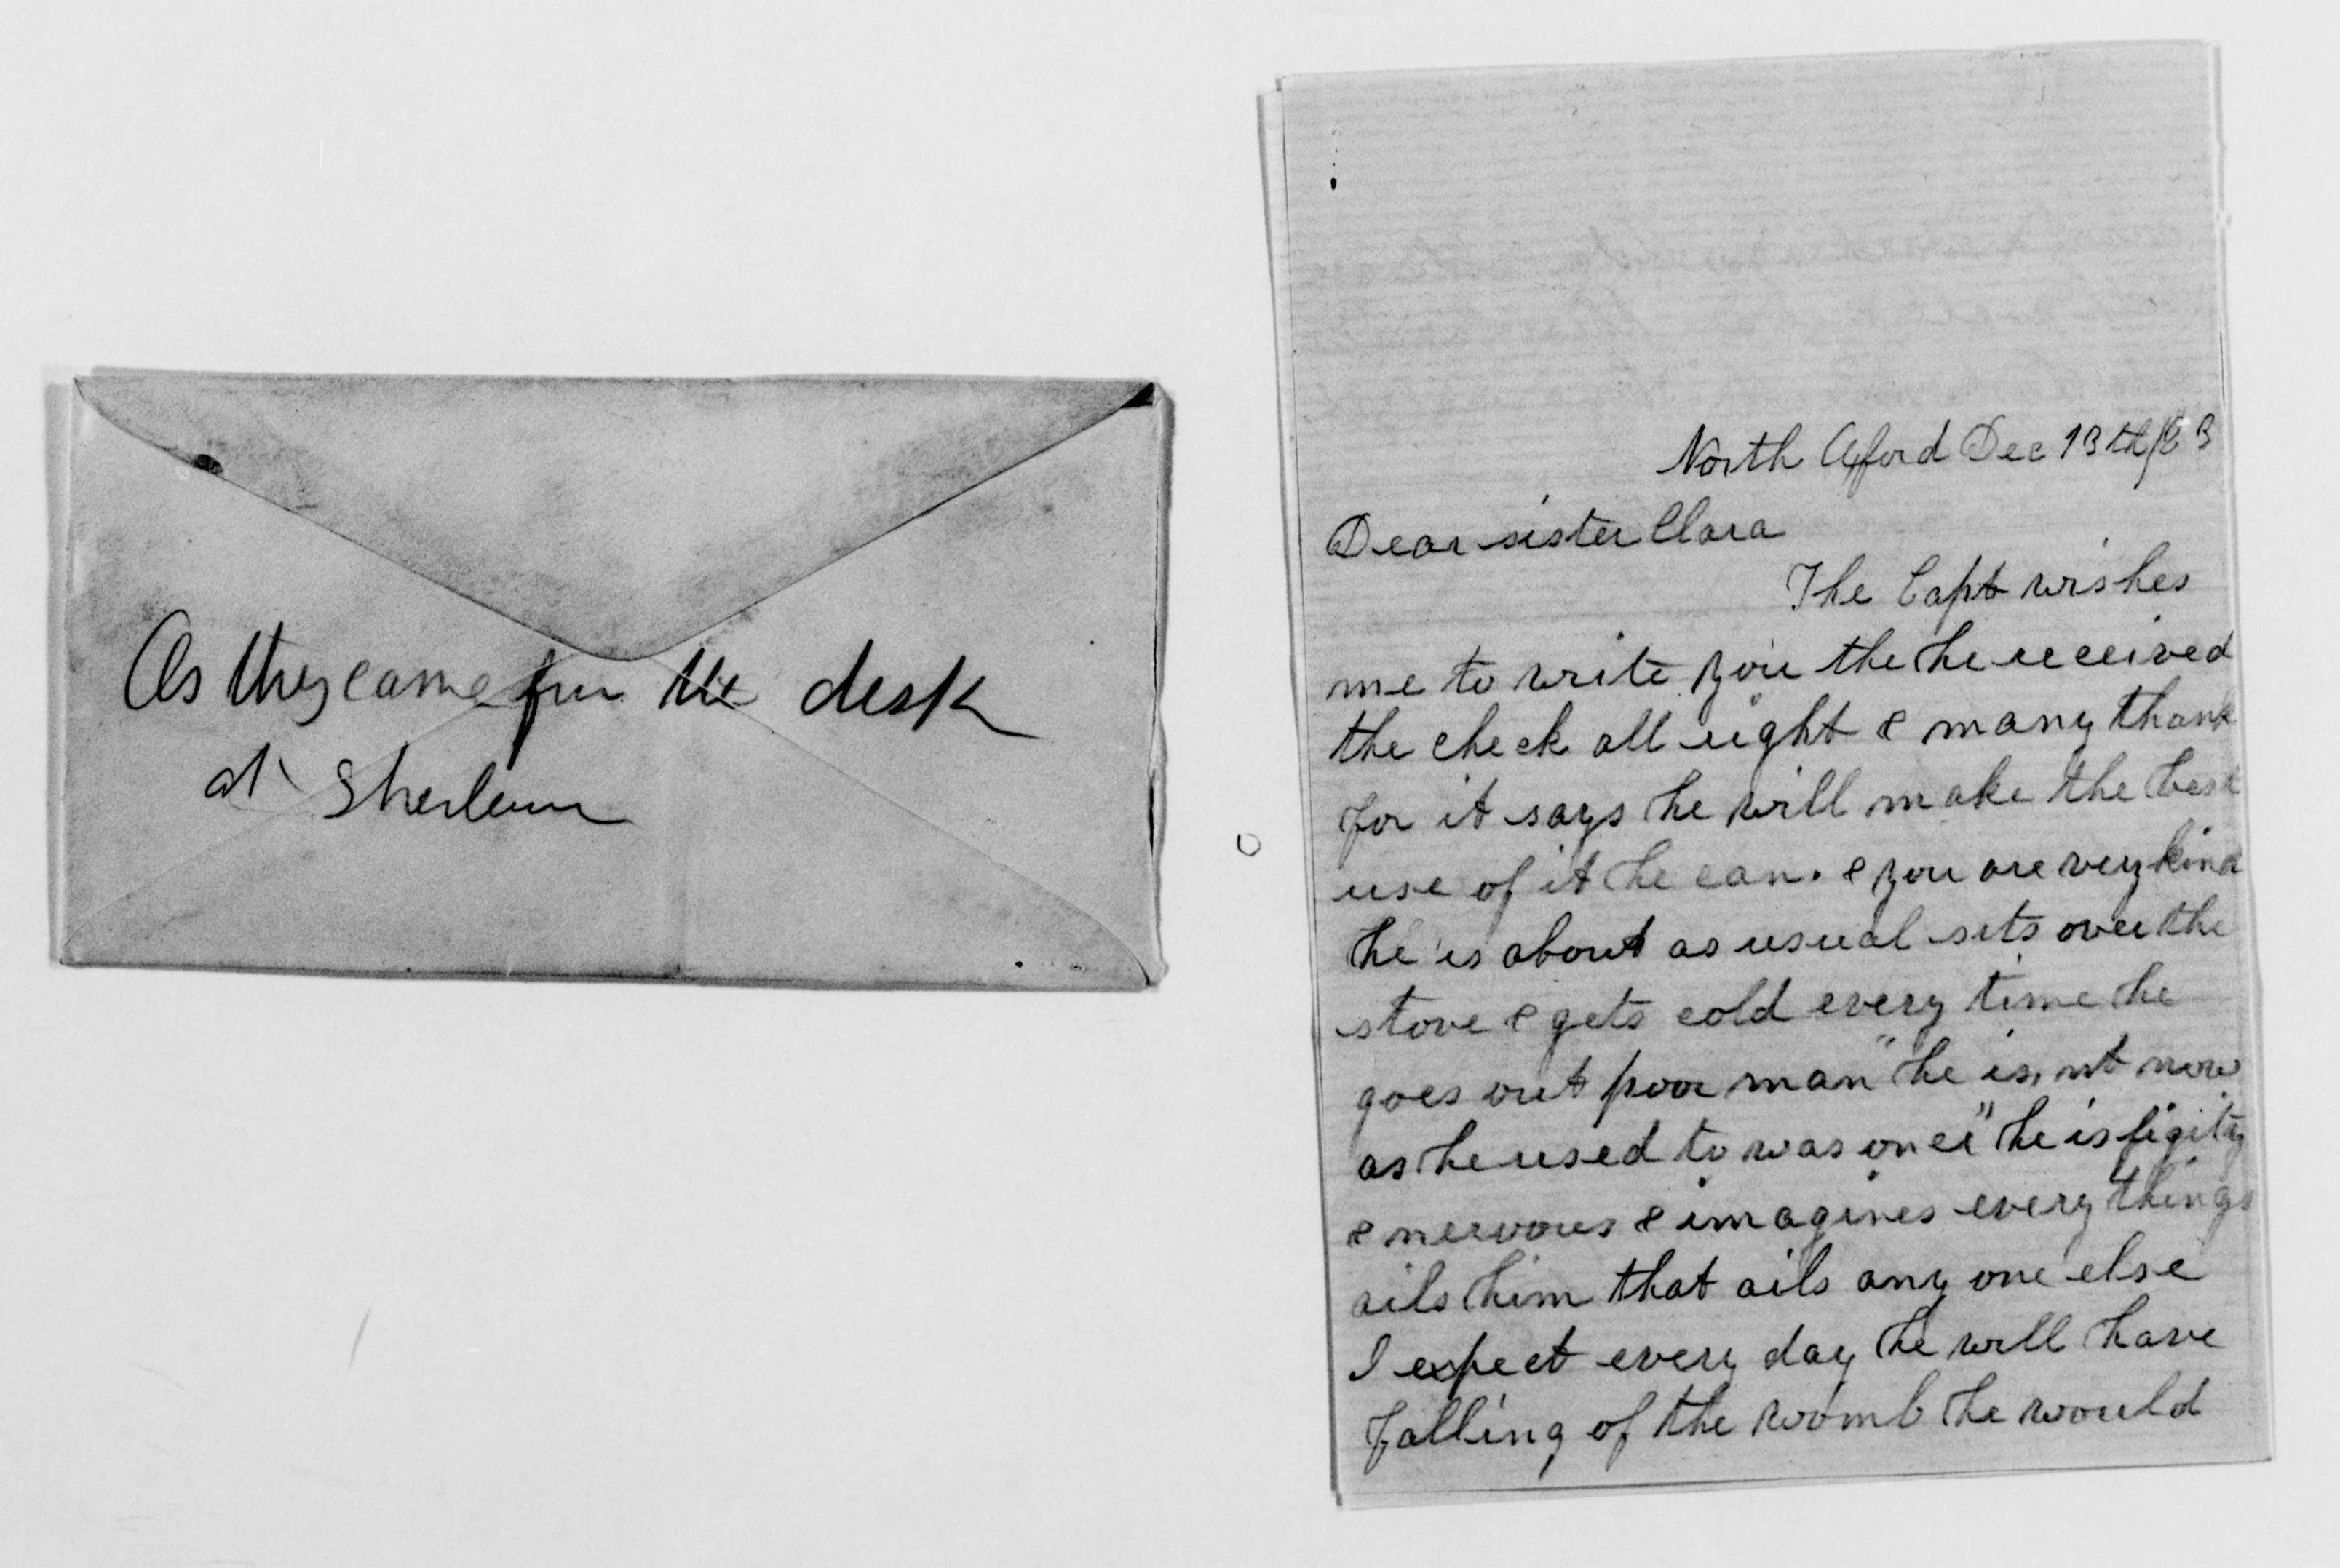 As they came from the desk
at Sherburn
North Oxford Dec 13th/83
Dear sister Clara
The Capt wishes
me to write you the he received
the check all right & many thank
for it says he will make the best
use of it he can. & you are very kind
he is about as usual sits over the
stove & gets cold every time he
goes out poor man "he is,nt now
as he used to was once" he is figity
& nervous & imagines every things
ails him that ails any one else
I expect every day he will have
falling of the womb he would